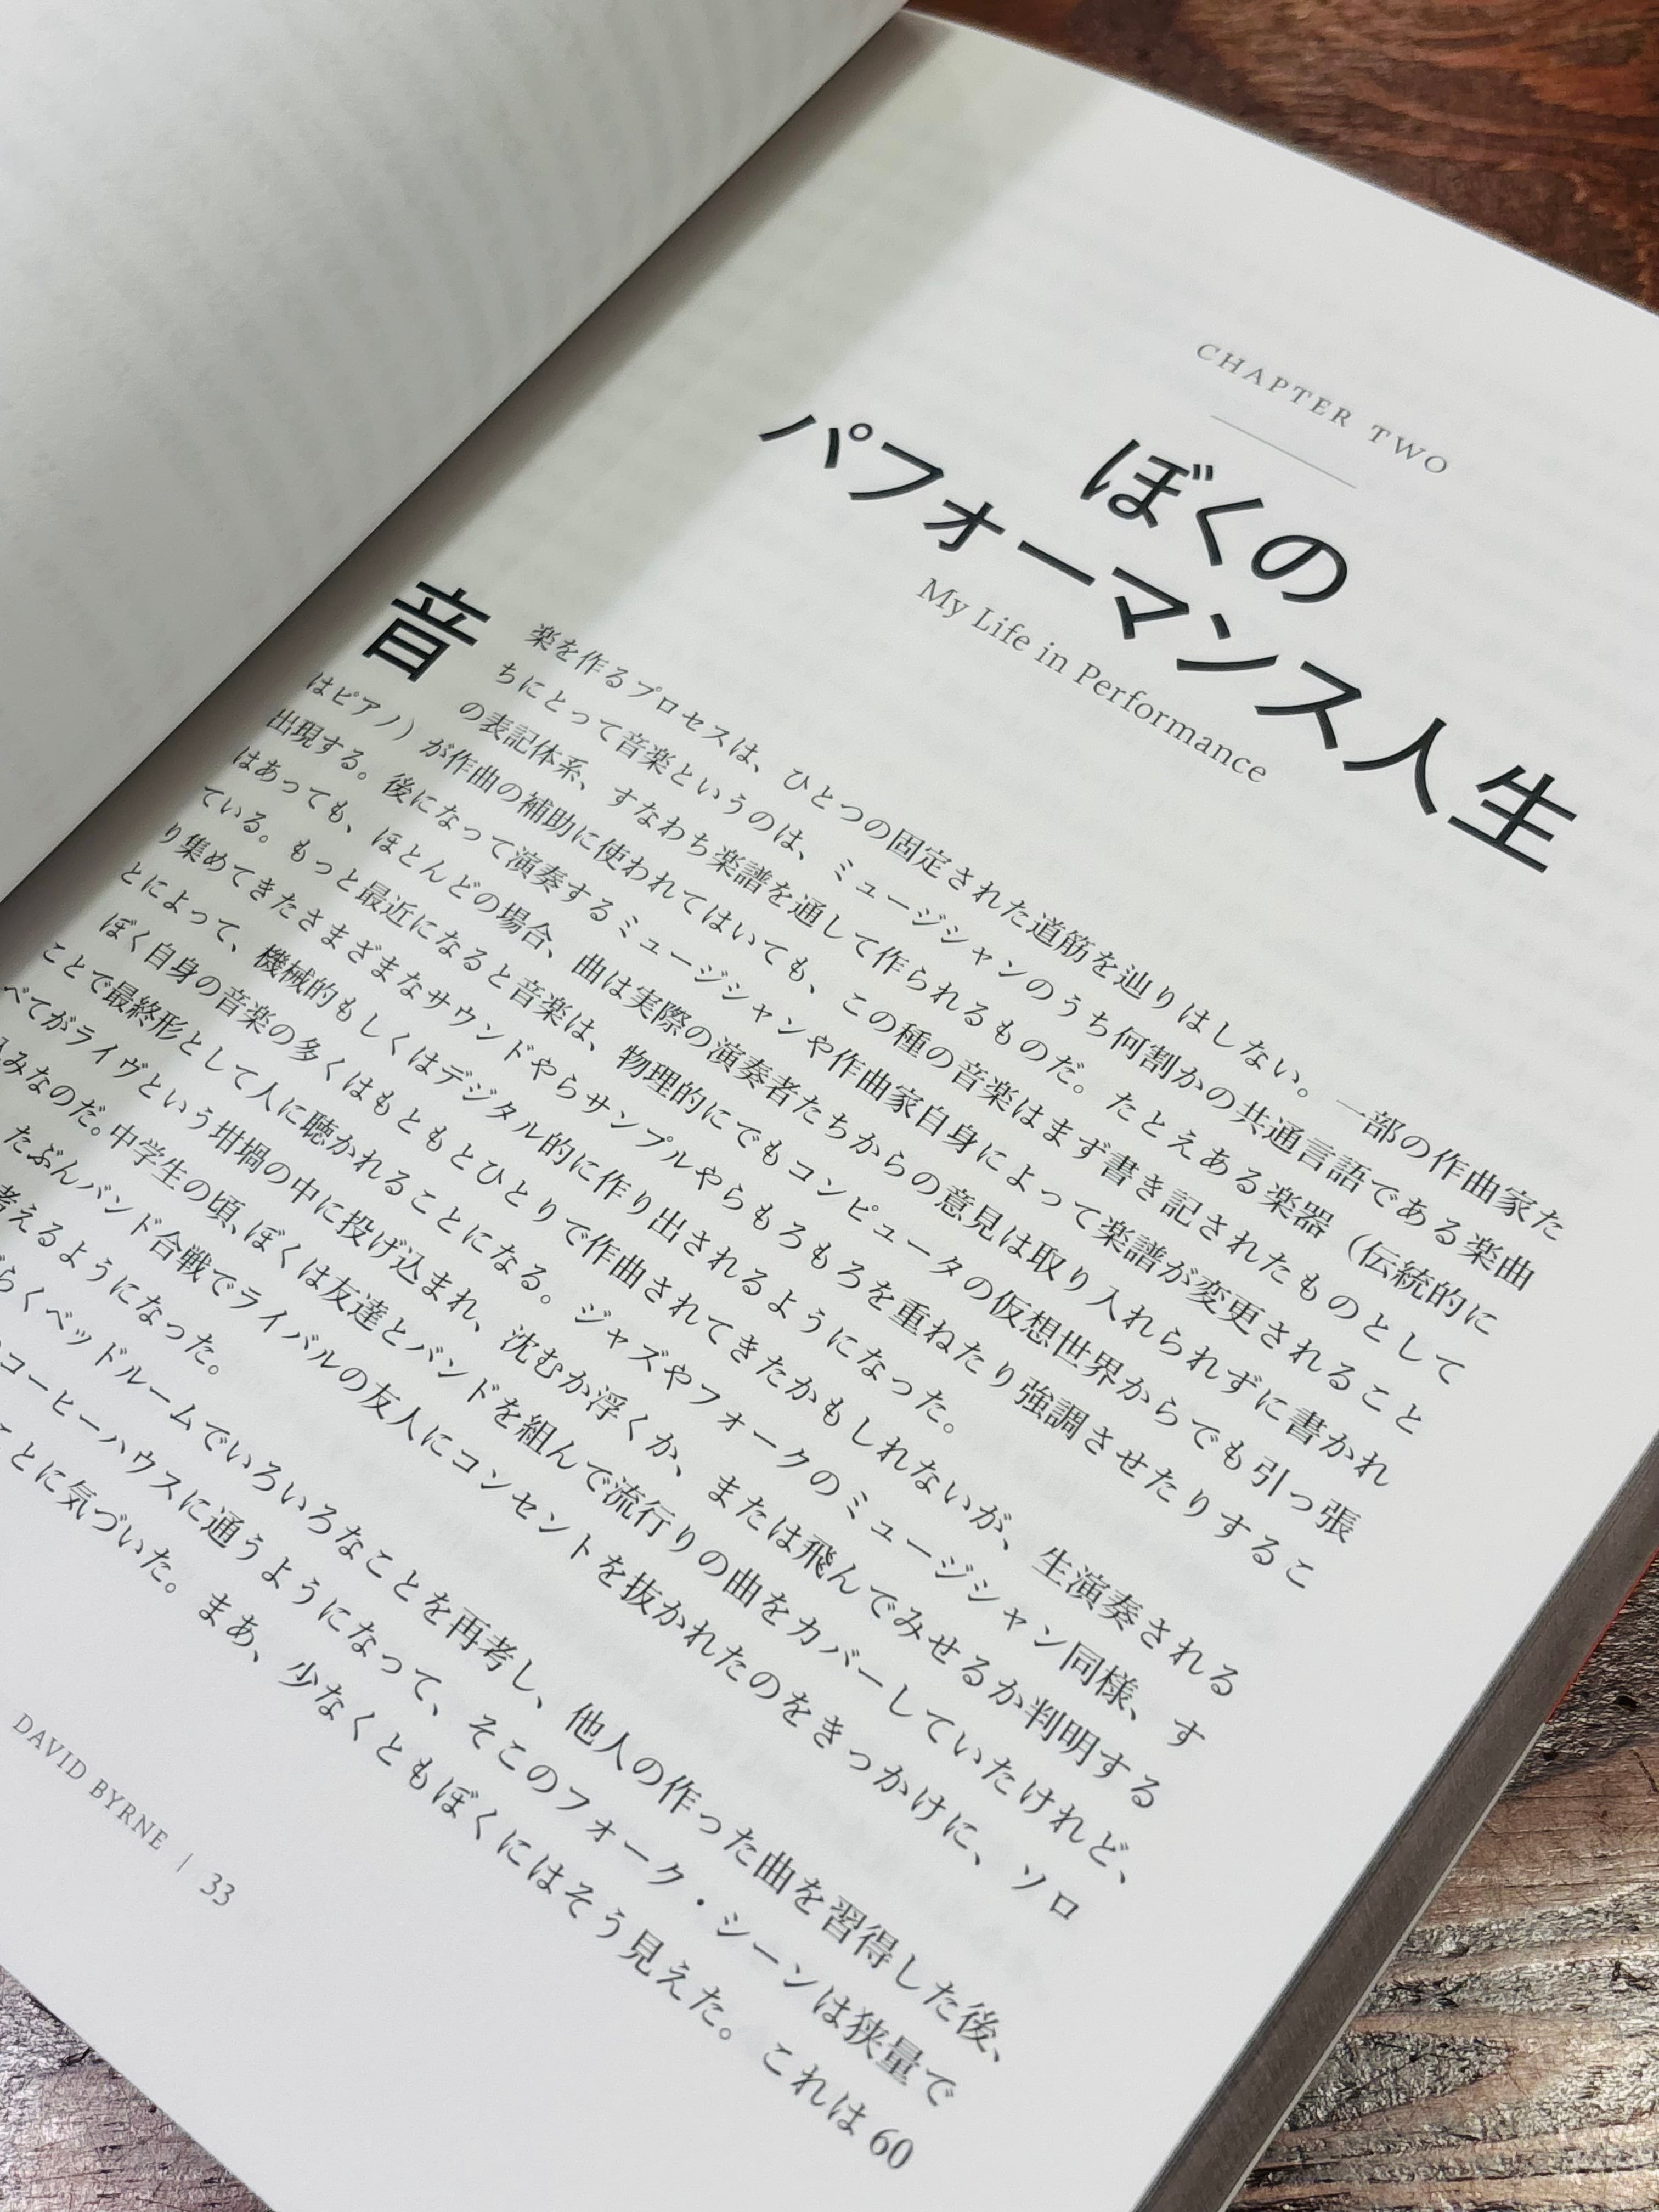 CHAPTER TWO
ぼくの
パフォーマンス人生
My Life in Performance
音楽を作るプロセスは、ひとつの固定された道筋を辿りはしない。一部の作曲家た
ちにとって音楽というのは、ミュージシャンのうち何割かの共通言語である楽曲
の表記体系、すなわち楽譜を通して作られるものだ。たとえある楽器（伝統的に
はピアノ）が作曲の補助に使われてはいても、この種の音楽はまず書き記されたものとして
出現する。後になって演奏するミュージシャンや作曲家自身によって楽譜が変更されること
はあっても、ほとんどの場合、曲は実際の演奏者たちからの意見は取り入れられずに書かれ
ている。もっと最近になると音楽は、物理的にでもコンピュータの仮想世界からでも引っ張
り集めてきたさまざまなサウンドやらサンプルやらもろもろを重ねたり強調させたりするこ
とによって、機械的もしくはデジタル的に作り出されるようになった。
ぼく自身の音楽の多くはもともとひとりで作曲されてきたかもしれないが、生演奏される
ことで最終形として人に聴かれることになる。ジャズやフォークのミュージシャン同様、す
べてがライヴという坩堝の中に投げ込まれ、沈むか浮くか、または飛んでみせるか判明する
みなのだ。中学生の頃、ぼくは友達とバンドを組んで流行りの曲をカバーしていたけれど、
たぶんバンド合戦でライバルの友人にコンセントを抜かれたのをきっかけに、ソロ
考えるようになった。
らくベッドルームでいろいろなことを再考し、他人の作った曲を習得した後、
コーヒーハウスに通うようになって、そこのフォーク・シーンは狭量で
とに気づいた。まあ、少なくともぼくにはそう見えた。これは60
DAVID BYRNE | 33